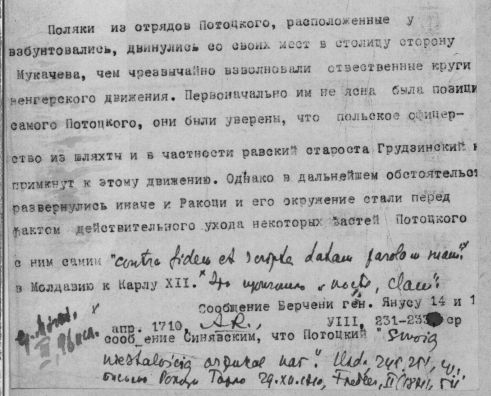 Поляки из отрядов Потоцкого, расположенные у
взбунтовались, двинулись со своих мест в столицу сторону
Мукачева, чем чрезвычайно взволновали отвественные круги
венгерского движения. Первоначально им не ясна была позици
самого Потоцкого, они были уверены, что польское офицер-
ство из шляхты и в частности равский староста Грудзинский н
примкнут к этому движению. Однако в дальнейшем обстоятельст
развернулись иначе и Ракоци и его окружение стали перед
фактом действительного ухода некоторых частей Потоцкого
с ним самим "contra fidem et scripto datam
в Молдавию к Карлу XII. Это "nocte, clam".
Сообщение Берчени ген. Янусу 14 и 1
апр. 1710, A.R., УIII, 231-233 ср
сооб_ение Синявским, что Потоцкий "swoią
29.XII.1710, Fiedler, II